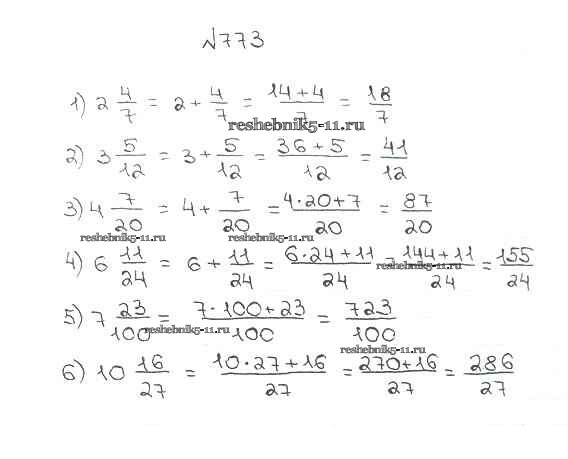 №773
1) 2 4/7 = 2 + 4/7 = 14+4/7 = 18/7
reshebnik5-11.ru
2) 3 5/12 = 3 + 5/12 = 36+5/12 = 41/12
3) 4 7/20 = 4 + 7/20 = 4·20+7/20 = 87/20
reshebnik5-11.ru reshebnik5-11.ru
4) 6 11/24 = 6 + 11/24 = 6·24+11/24 = 144+11/24 = 155/24
reshebnik5-11.ru
5) 7 23/100 = 7·100+23/100 = 723/100
reshebnik5-11.ru
reshebnik5-11.ru
6) 10 16/27 = 10·27+16/27 = 270+16/27 = 286/27